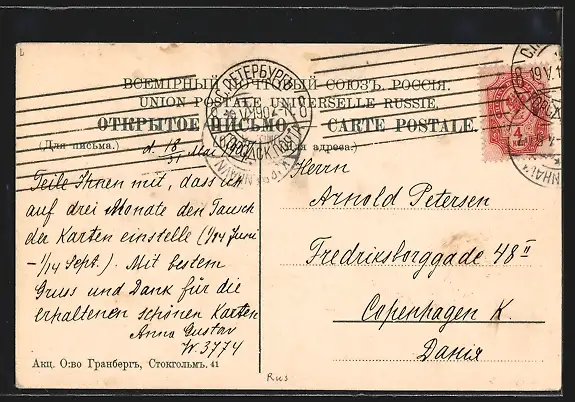 ВСЕМІРНЫЙ ПОЧТОВЫЙ СОЮЗЪ. РОССІЯ.
UNION POSTALE UNIVERSELLE RUSSIE.
ОТКРЫТОЕ ПИСЬМО — CARTE POSTALE.
(Для письма.)
(Для адреса.)
С. ПЕТЕРБУРГЪ
d. 18/31 Mai 1907.
Teile Ihnen mit, dass ich
auf drei Monate den Tausch
der Karten einstelle (1/14 Juni
-1/14 Sept.). Mit bestem
Gruss und Dank für die
erhaltenen schönen Karten
Anna Gustav
W 3774
Herrn
Arnold Petersen
Fredriksborggade 48 II
Copenhagen K.
Данія
4
Акц. О:во Гранбергъ, Стокгольмъ. 41
Rus